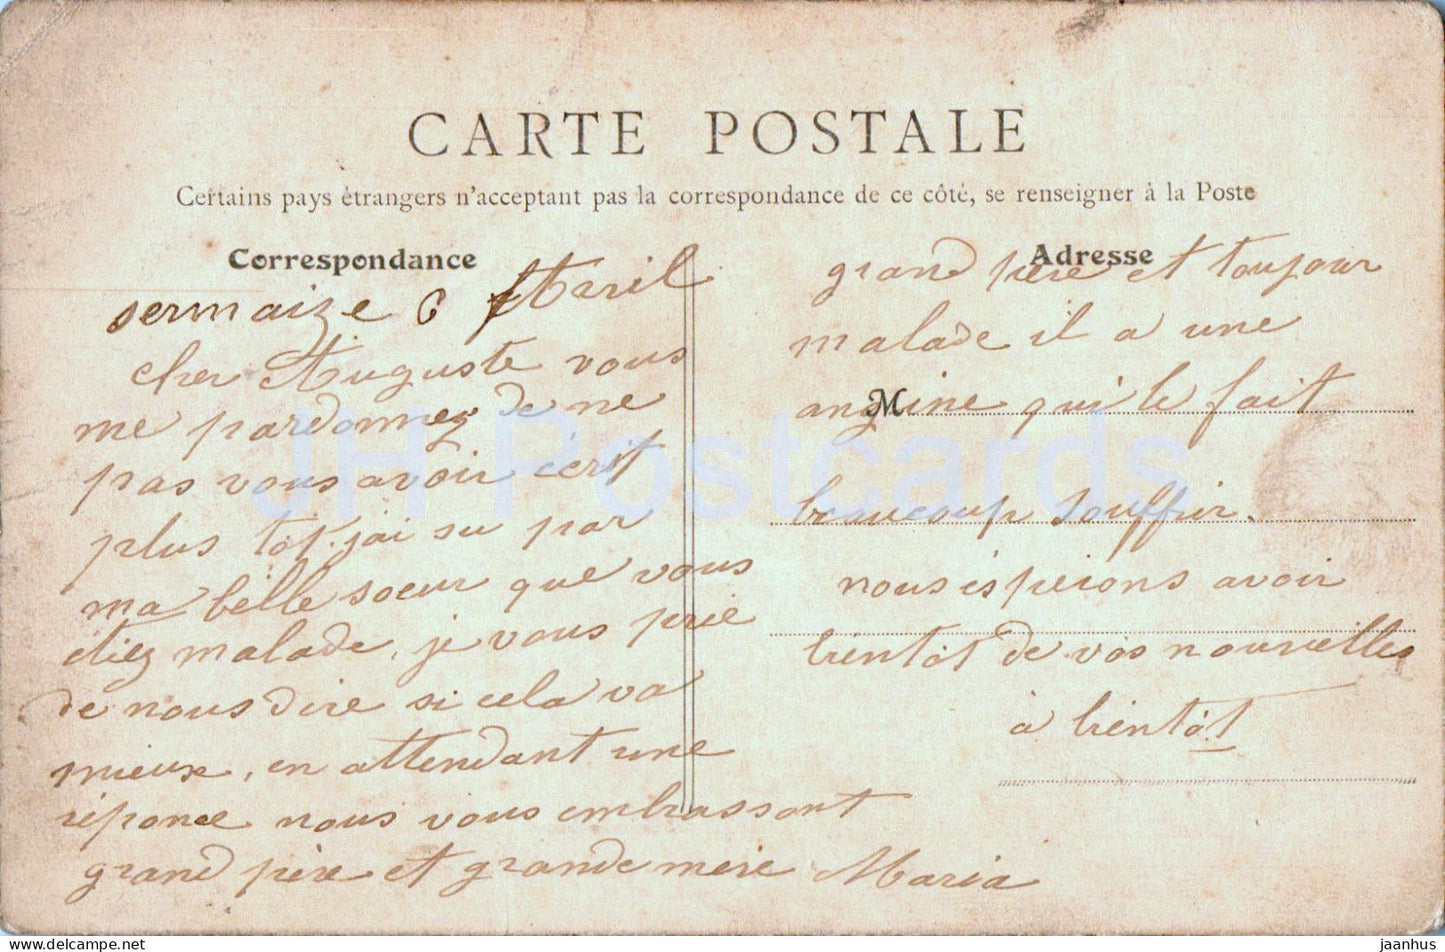 CARTE POSTALE
Certains pays étrangers n'acceptant pas la correspondance de ce côté, se renseigner à la Poste
Correspondance
sermaize 6 Avril
cher Auguste vous
me pardonnez de ne
pas vous avoir écrit
plus tôt. jai su par
ma belle soeur que vous
étiez malade, je vous prie
de nous dire si cela va
mieux, en attendant une
réponce nous vous embrassont
grand père et grande mère Maria
Adresse
grand père et toujour
malade il a une
M
angine qui le fait
beaucoup souffrir.
nous ésperons avoir
bientôt de vos nouvelles
à bientôt
JH Postcards
https://www.delcampe.net
jaanhus